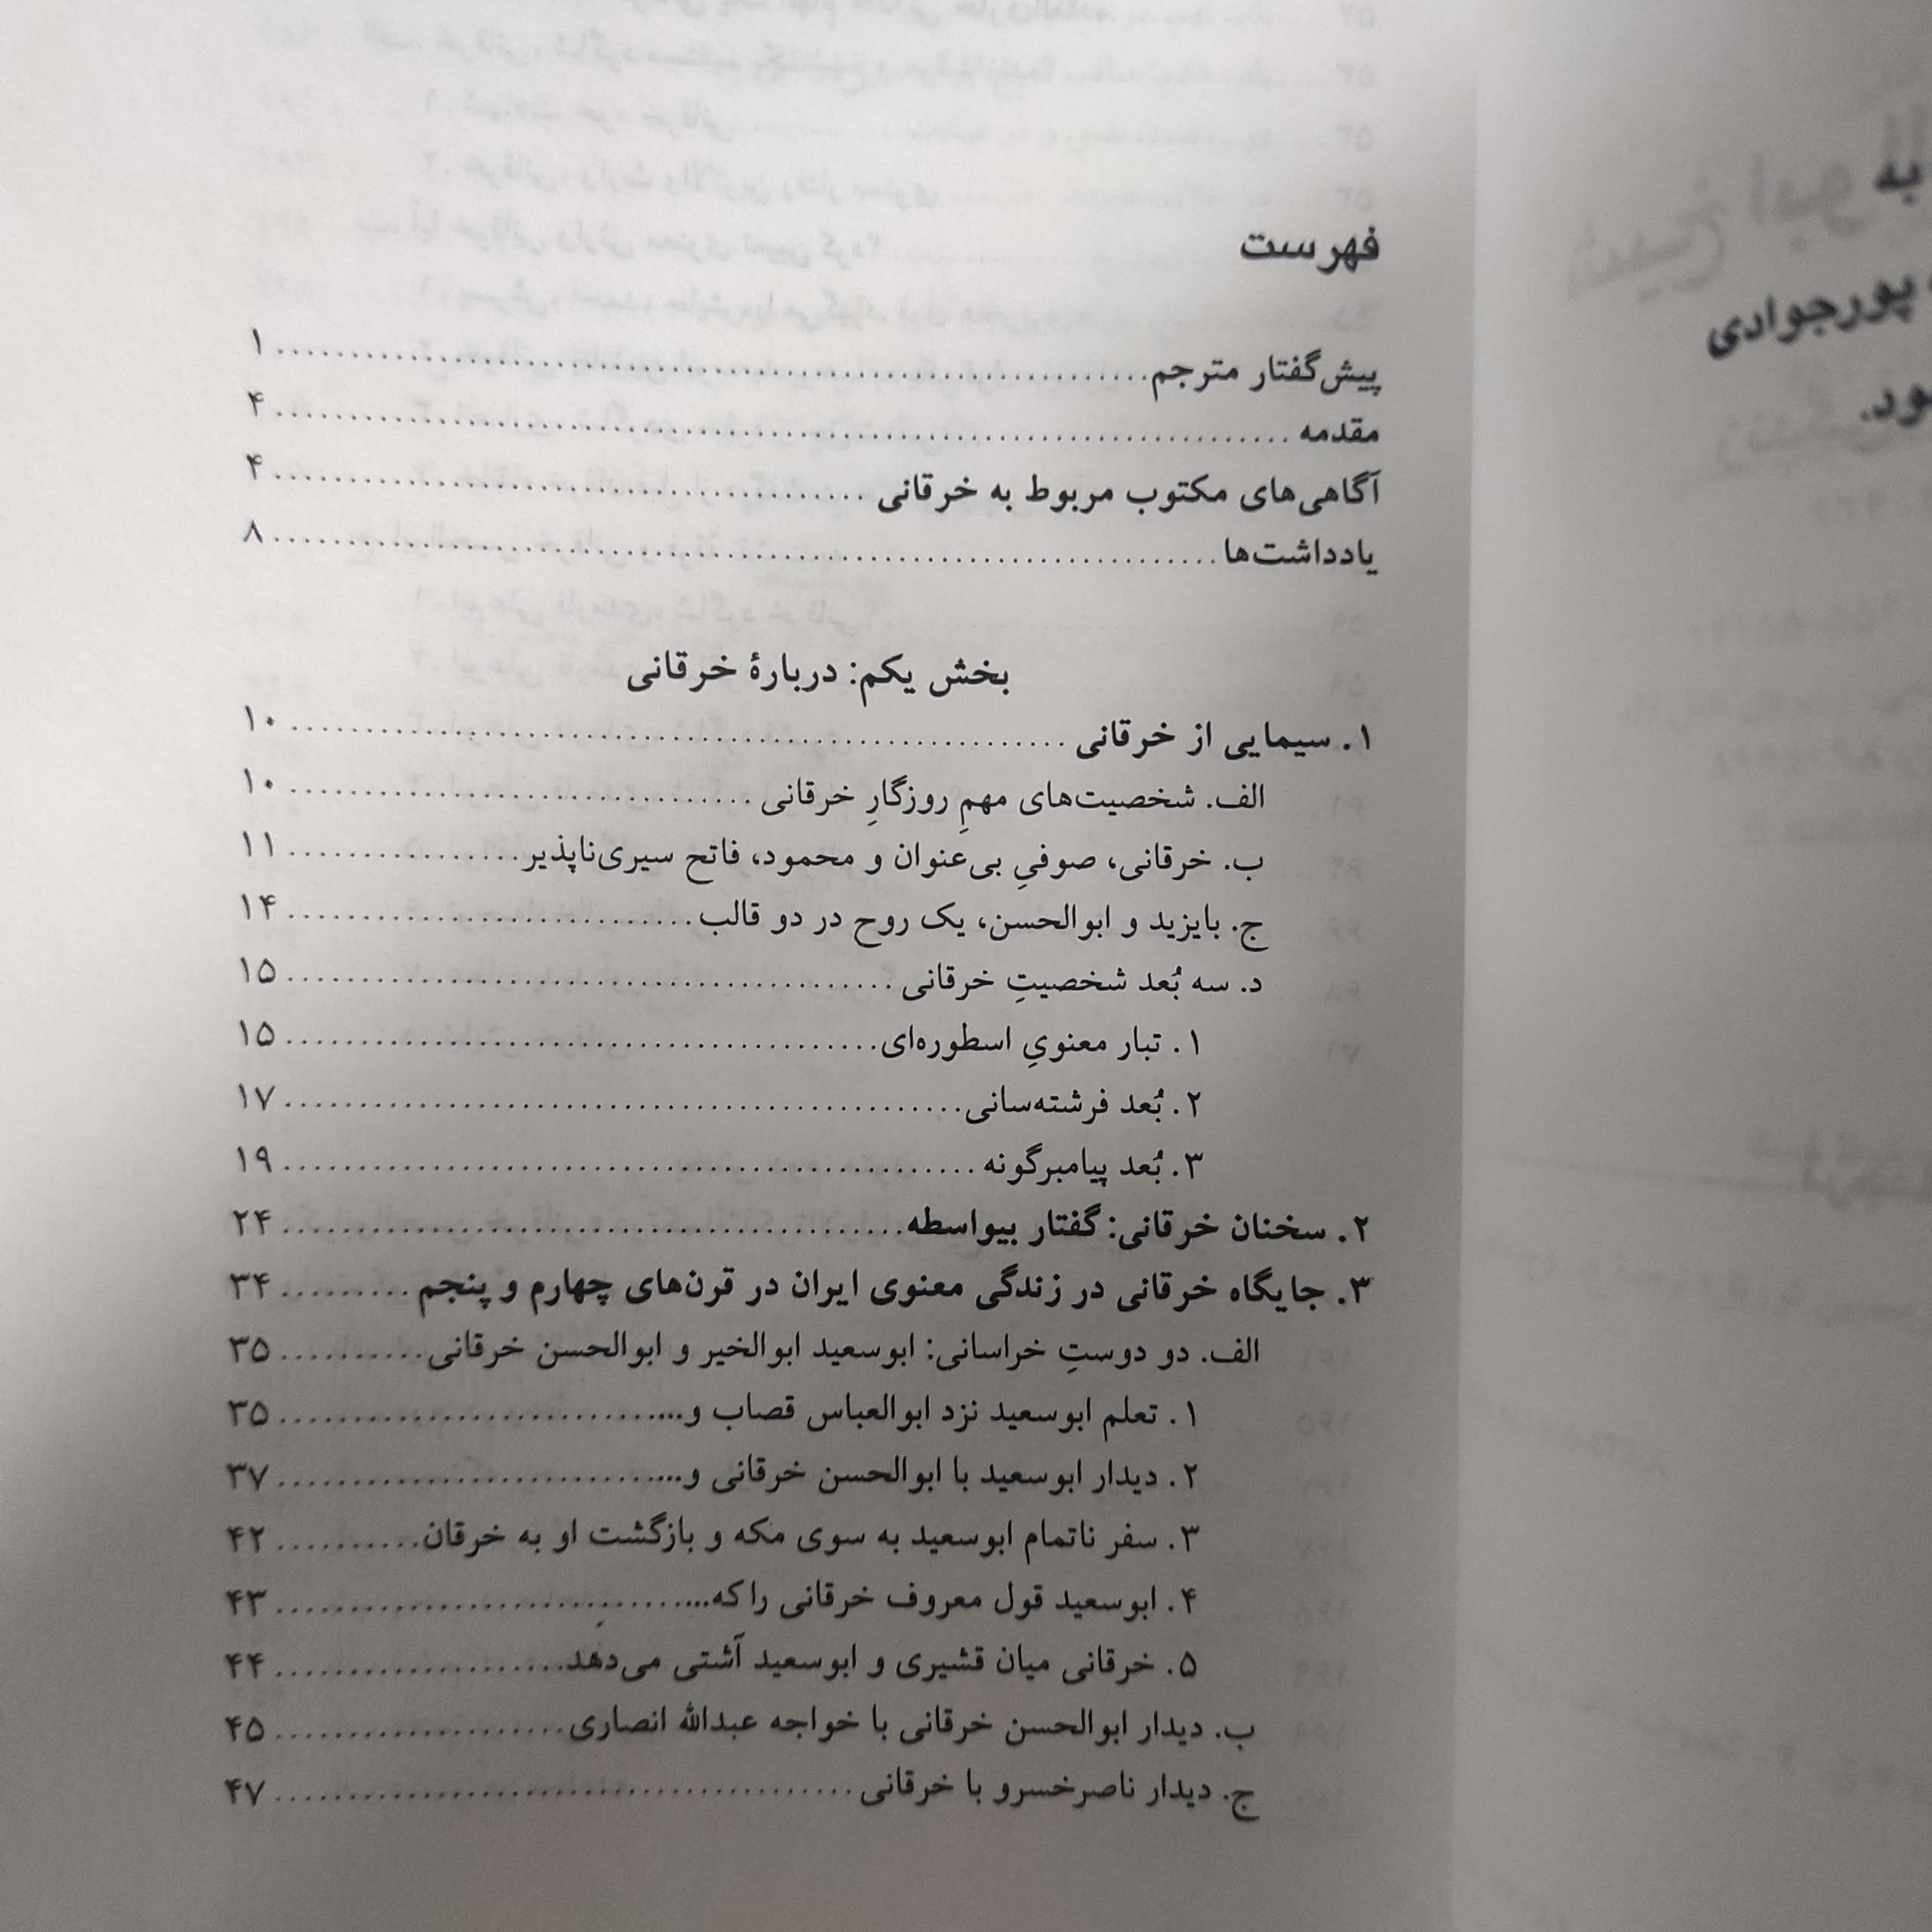 به
پورجوادی
فهرست
پیش‌گفتار مترجم ........ ۱
مقدمه ........ ۴
آگاهی‌های مکتوب مربوط به خرقانی ........ ۴
یادداشت‌ها ........ ۸
بخش یکم: دربارهٔ خرقانی
۱. سیمایی از خرقانی ........ ۱۰
الف. شخصیت‌های مهمِ روزگارِ خرقانی ........ ۱۰
ب. خرقانی، صوفیِ بی‌عنوان و محمود، فاتح سیری‌ناپذیر ........ ۱۱
ج. بایزید و ابوالحسن، یک روح در دو قالب ........ ۱۴
د. سه بُعد شخصیتِ خرقانی ........ ۱۵
۱. تبار معنویِ اسطوره‌ای ........ ۱۵
۲. بُعد فرشته‌سانی ........ ۱۷
۳. بُعد پیامبرگونه ........ ۱۹
۲. سخنان خرقانی: گفتار بیواسطه ........ ۲۴
۳. جایگاه خرقانی در زندگی معنوی ایران در قرن‌های چهارم و پنجم ........ ۳۴
الف. دو دوستِ خراسانی: ابوسعید ابوالخیر و ابوالحسن خرقانی ........ ۳۵
۱. تعلم ابوسعید نزد ابوالعباس قصاب و... ........ ۳۵
۲. دیدار ابوسعید با ابوالحسن خرقانی و... ........ ۳۷
۳. سفر ناتمام ابوسعید به سوی مکه و بازگشت او به خرقان ........ ۴۲
۴. ابوسعید قول معروف خرقانی را که... ........ ۴۳
۵. خرقانی میان قشیری و ابوسعید آشتی می‌دهد ........ ۴۴
ب. دیدار ابوالحسن خرقانی با خواجه عبدالله انصاری ........ ۴۵
ج. دیدار ناصرخسرو با خرقانی ........ ۴۷